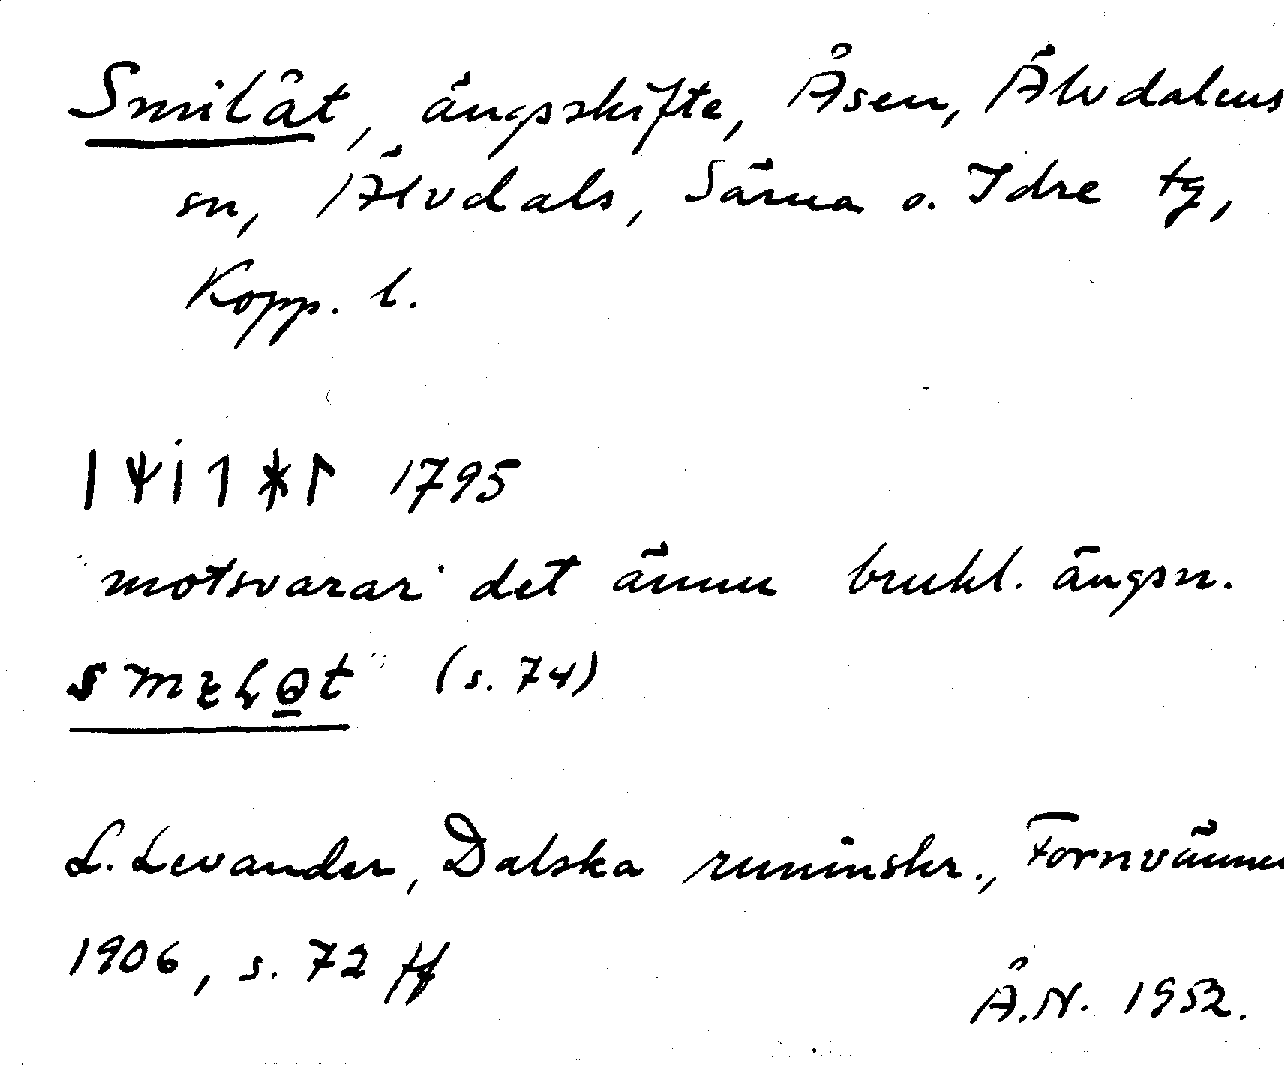 Smilåt, ängsskifte, Åsen, Älvdalens
sn, Älvdals, Särna o. Idre tg,
Kopp. l.
ᛁᛘᛁᛐᚼᛚ 1795
"motsvarar det ännu brukl. ängsn.
(s. 74)
L. Levander, Dalska runinskr., Fornvännen
1906, s. 72 ff
Å.N. 1952.